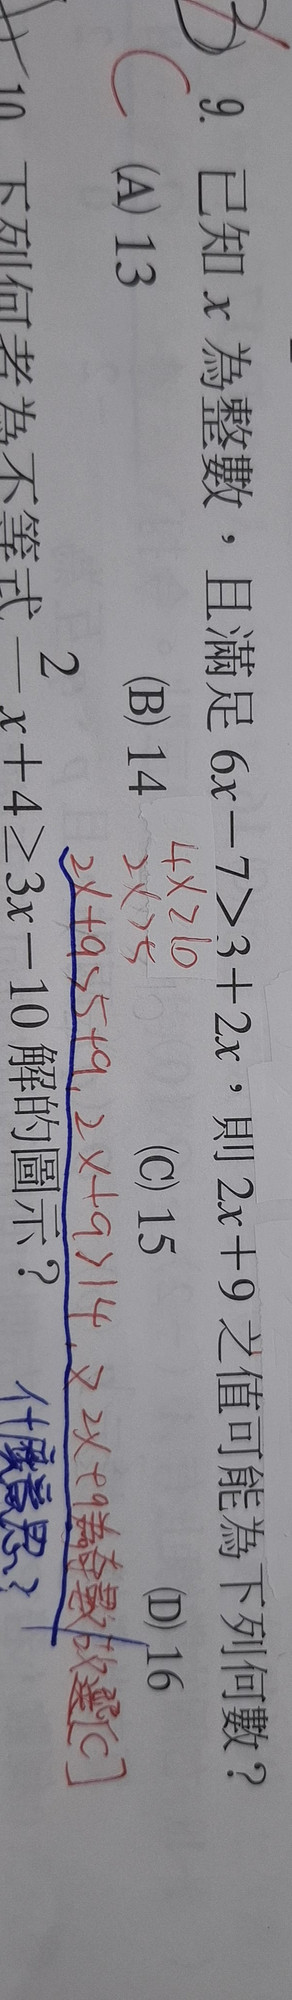 9. 已知 x 為整數，且滿足 6x－7＞3＋2x，則 2x＋9 之值可能為下列何數？
C
(A) 13 (B) 14 (C) 15 (D) 16
4x＞10
2x＞5
2x+9＞5+9, 2x+9＞14, ∵2x+9為奇數故選[C]
10 下列何者為不等式－x＋4≥3x－10 解的圖示？
2
什麼意思？